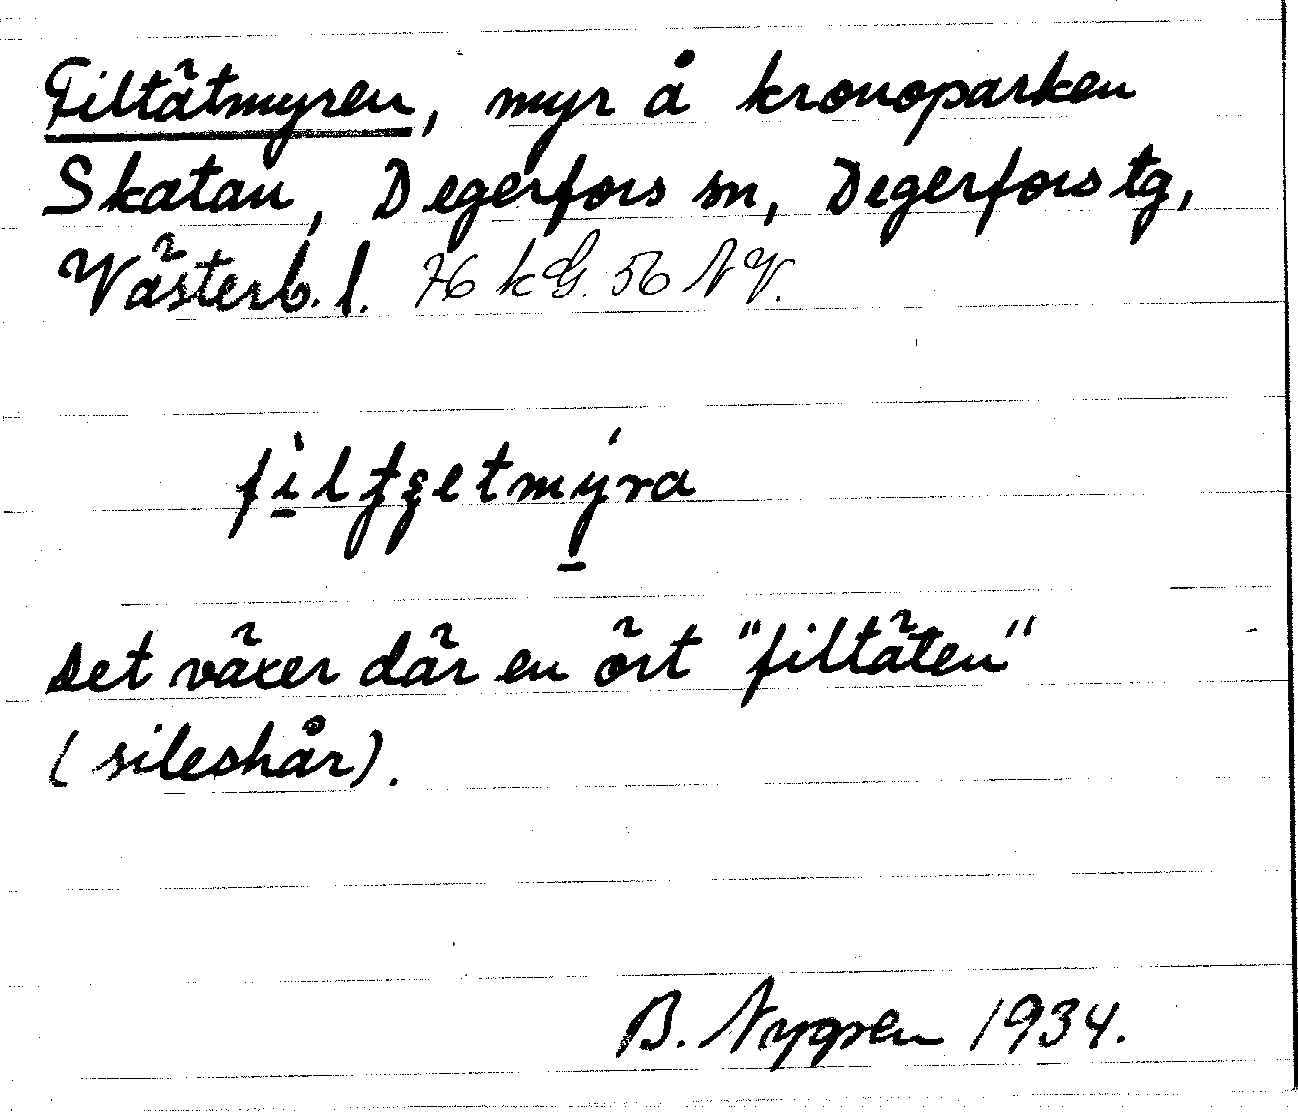 Filtätmyren, myr å kronoparken
Skatan, Degerfors sn, Degerfors tg,
Västerb. l. 76 kG. 56 NV.
Det växer där en ört "filtäten"
(sileshår).
B. Nygren 1934.